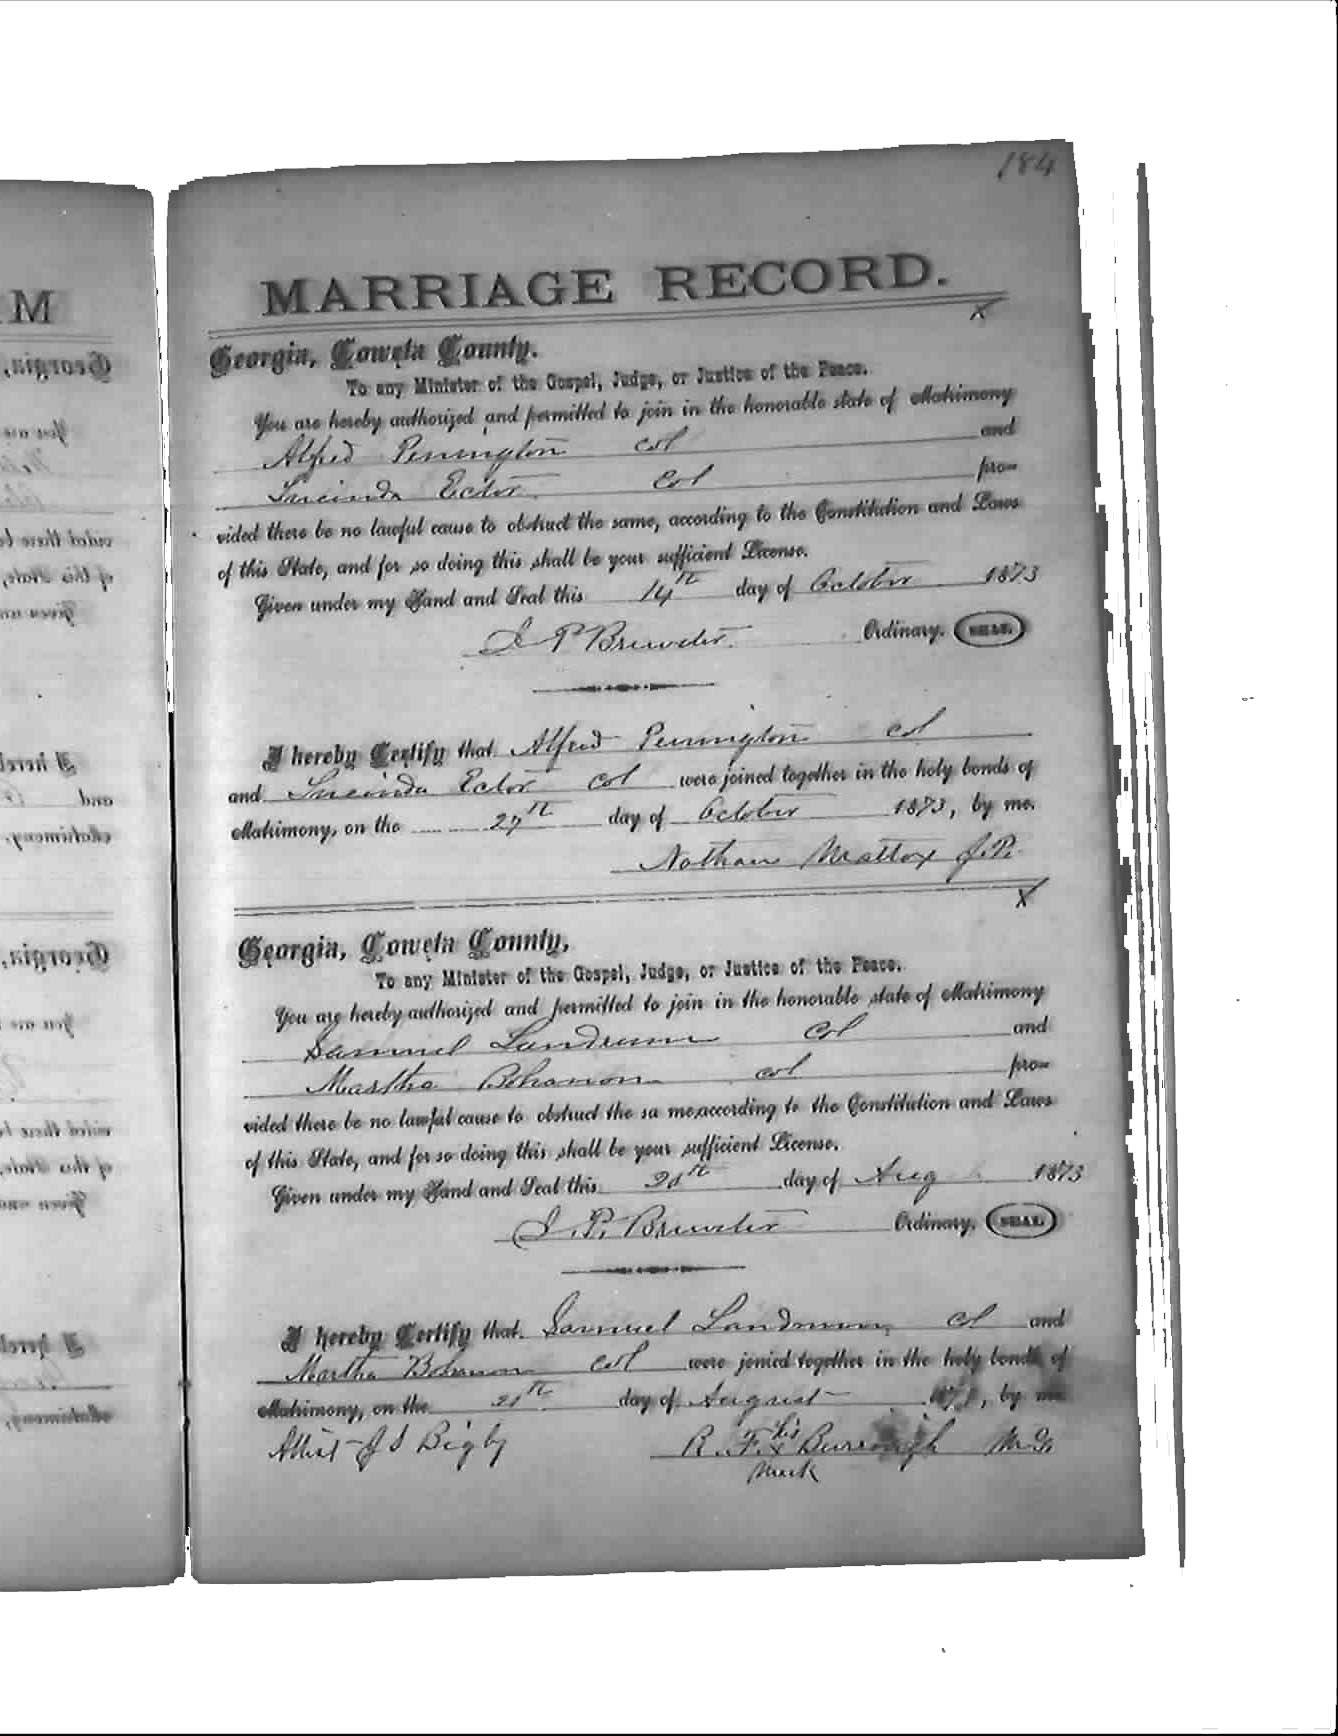 184
MARRIAGE RECORD.
X
Georgia, Coweta County.
To any Minister of the Gospel, Judge, or Justice of the Peace.
You are hereby authorized and permitted to join in the honorable state of Matrimony
Alfred Pennington col and
Lucinda Ector Col pro-
vided there be no lawful cause to obstruct the same, according to the Constitution and Laws
of this State, and for so doing this shall be your sufficient License.
Given under my Hand and Seal this 14th day of October 1873
J P Brewster. Ordinary. SEAL.
I hereby Certify that Alfred Pennington col
and Lucinda Ector col were joined together in the holy bonds of
Matrimony, on the 27th day of October 1873, by me.
Nathan Mattox J.P.
X
Georgia, Coweta County,
To any Minister of the Gospel, Judge, or Justice of the Peace.
You are hereby authorized and permitted to join in the honorable state of Matrimony
Samuel Landrum Col and
Martha Bohanon col pro-
vided there be no lawful cause to obstruct the sa me, according to the Constitution and Laws
of this State, and for so doing this shall be your sufficient License.
Given under my Hand and Seal this day of Aug 1873
J. P. Brewster Ordinary. SEAL.
I hereby Certify that Samuel Landrum col and
Martha Bohanon col were jonied together in the holy bonds of
Matrimony, on the day of August 1873, by me
Attest J S Bigby R. F. his x Burrough M G
mark